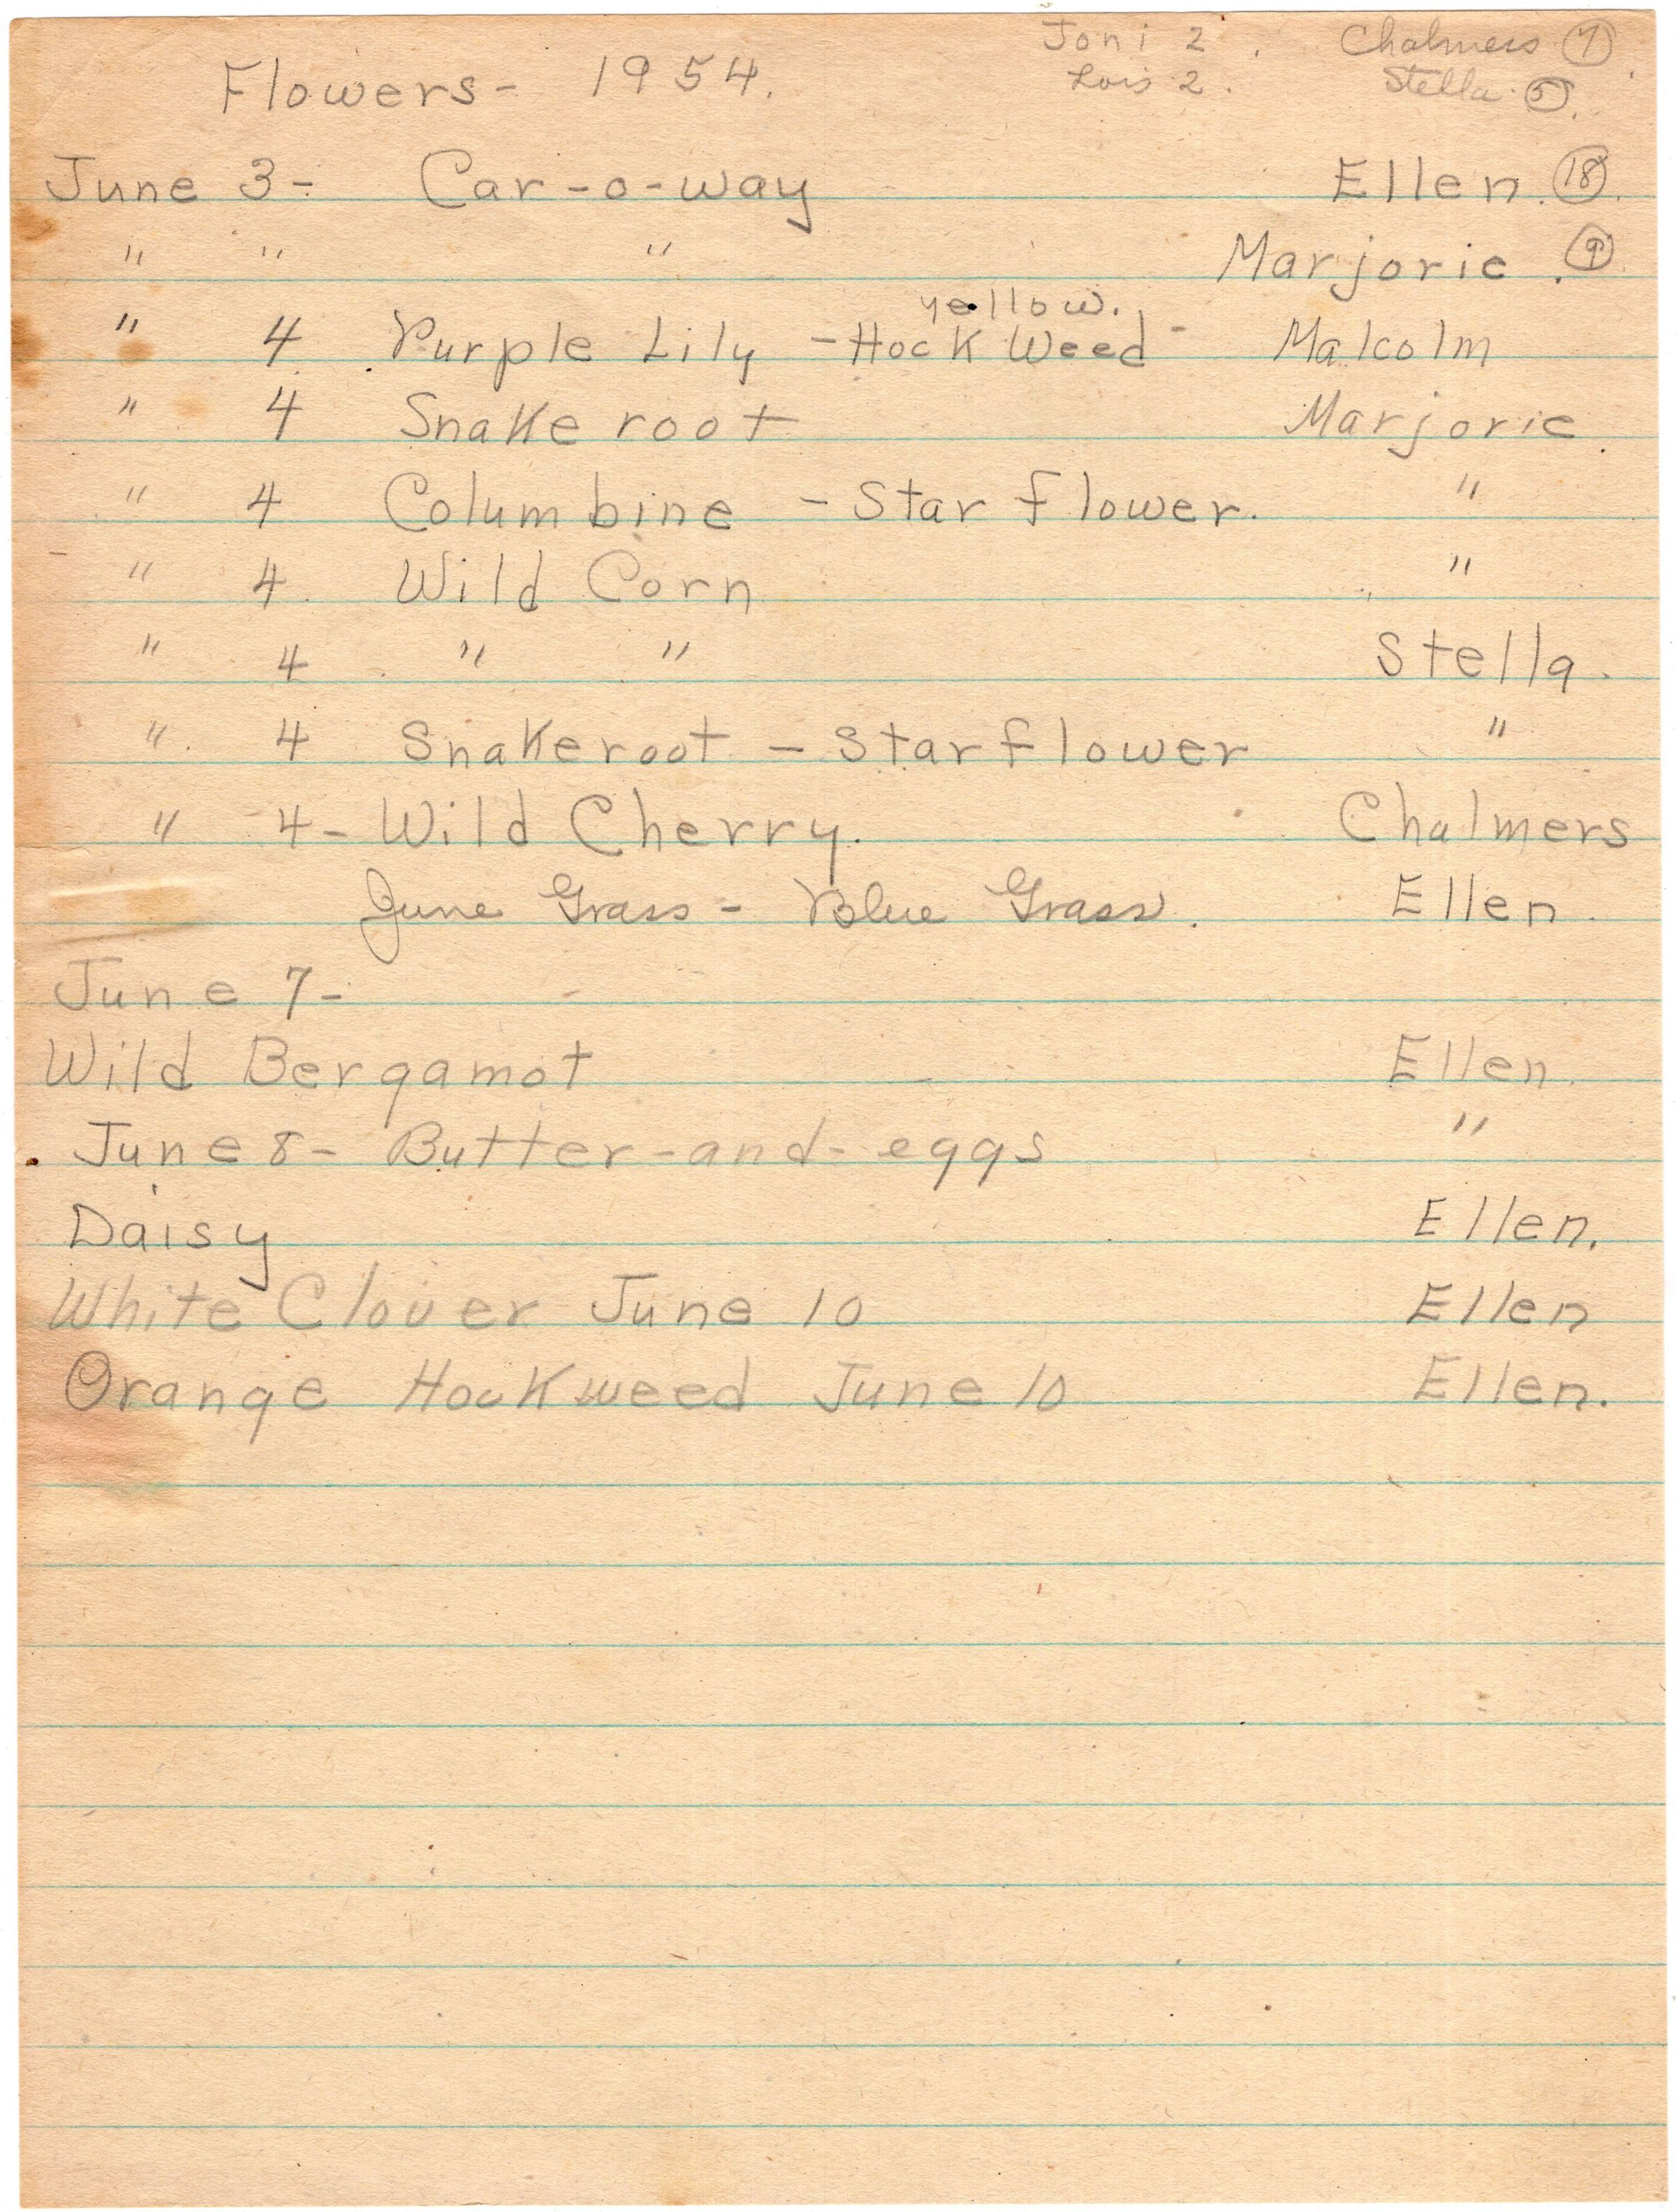 Joni 2. Chalmers 7.
Flowers - 1954. Lois 2. Stella 5.
June 3 - Car-o-way Ellen. 18.
" " " Marjorie. 9.
yellow.
" 4 Purple Lily - Hock Weed - Malcolm
" 4 Snake root Marjorie.
" 4 Columbine - Star flower. "
" 4. Wild Corn "
" 4 " " Stella.
" 4 Snakeroot - Star flower "
" 4 - Wild Cherry. Chalmers
June Grass - Blue Grass. Ellen.
June 7 -
Wild Bergamot Ellen.
June 8 - Butter-and-eggs "
Daisy Ellen.
White Clover June 10 Ellen
Orange Hockweed June 10 Ellen.